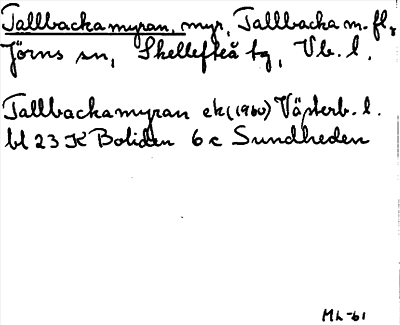 Tallbackamyran, myr, Tallbacka m. fl.,
Jörns sn, Skellefteå tg, Vb. l.
Tallbackamyran ek (1960) Västerb. l.
bl 23 K Boliden 6 c Sundheden
ML-61